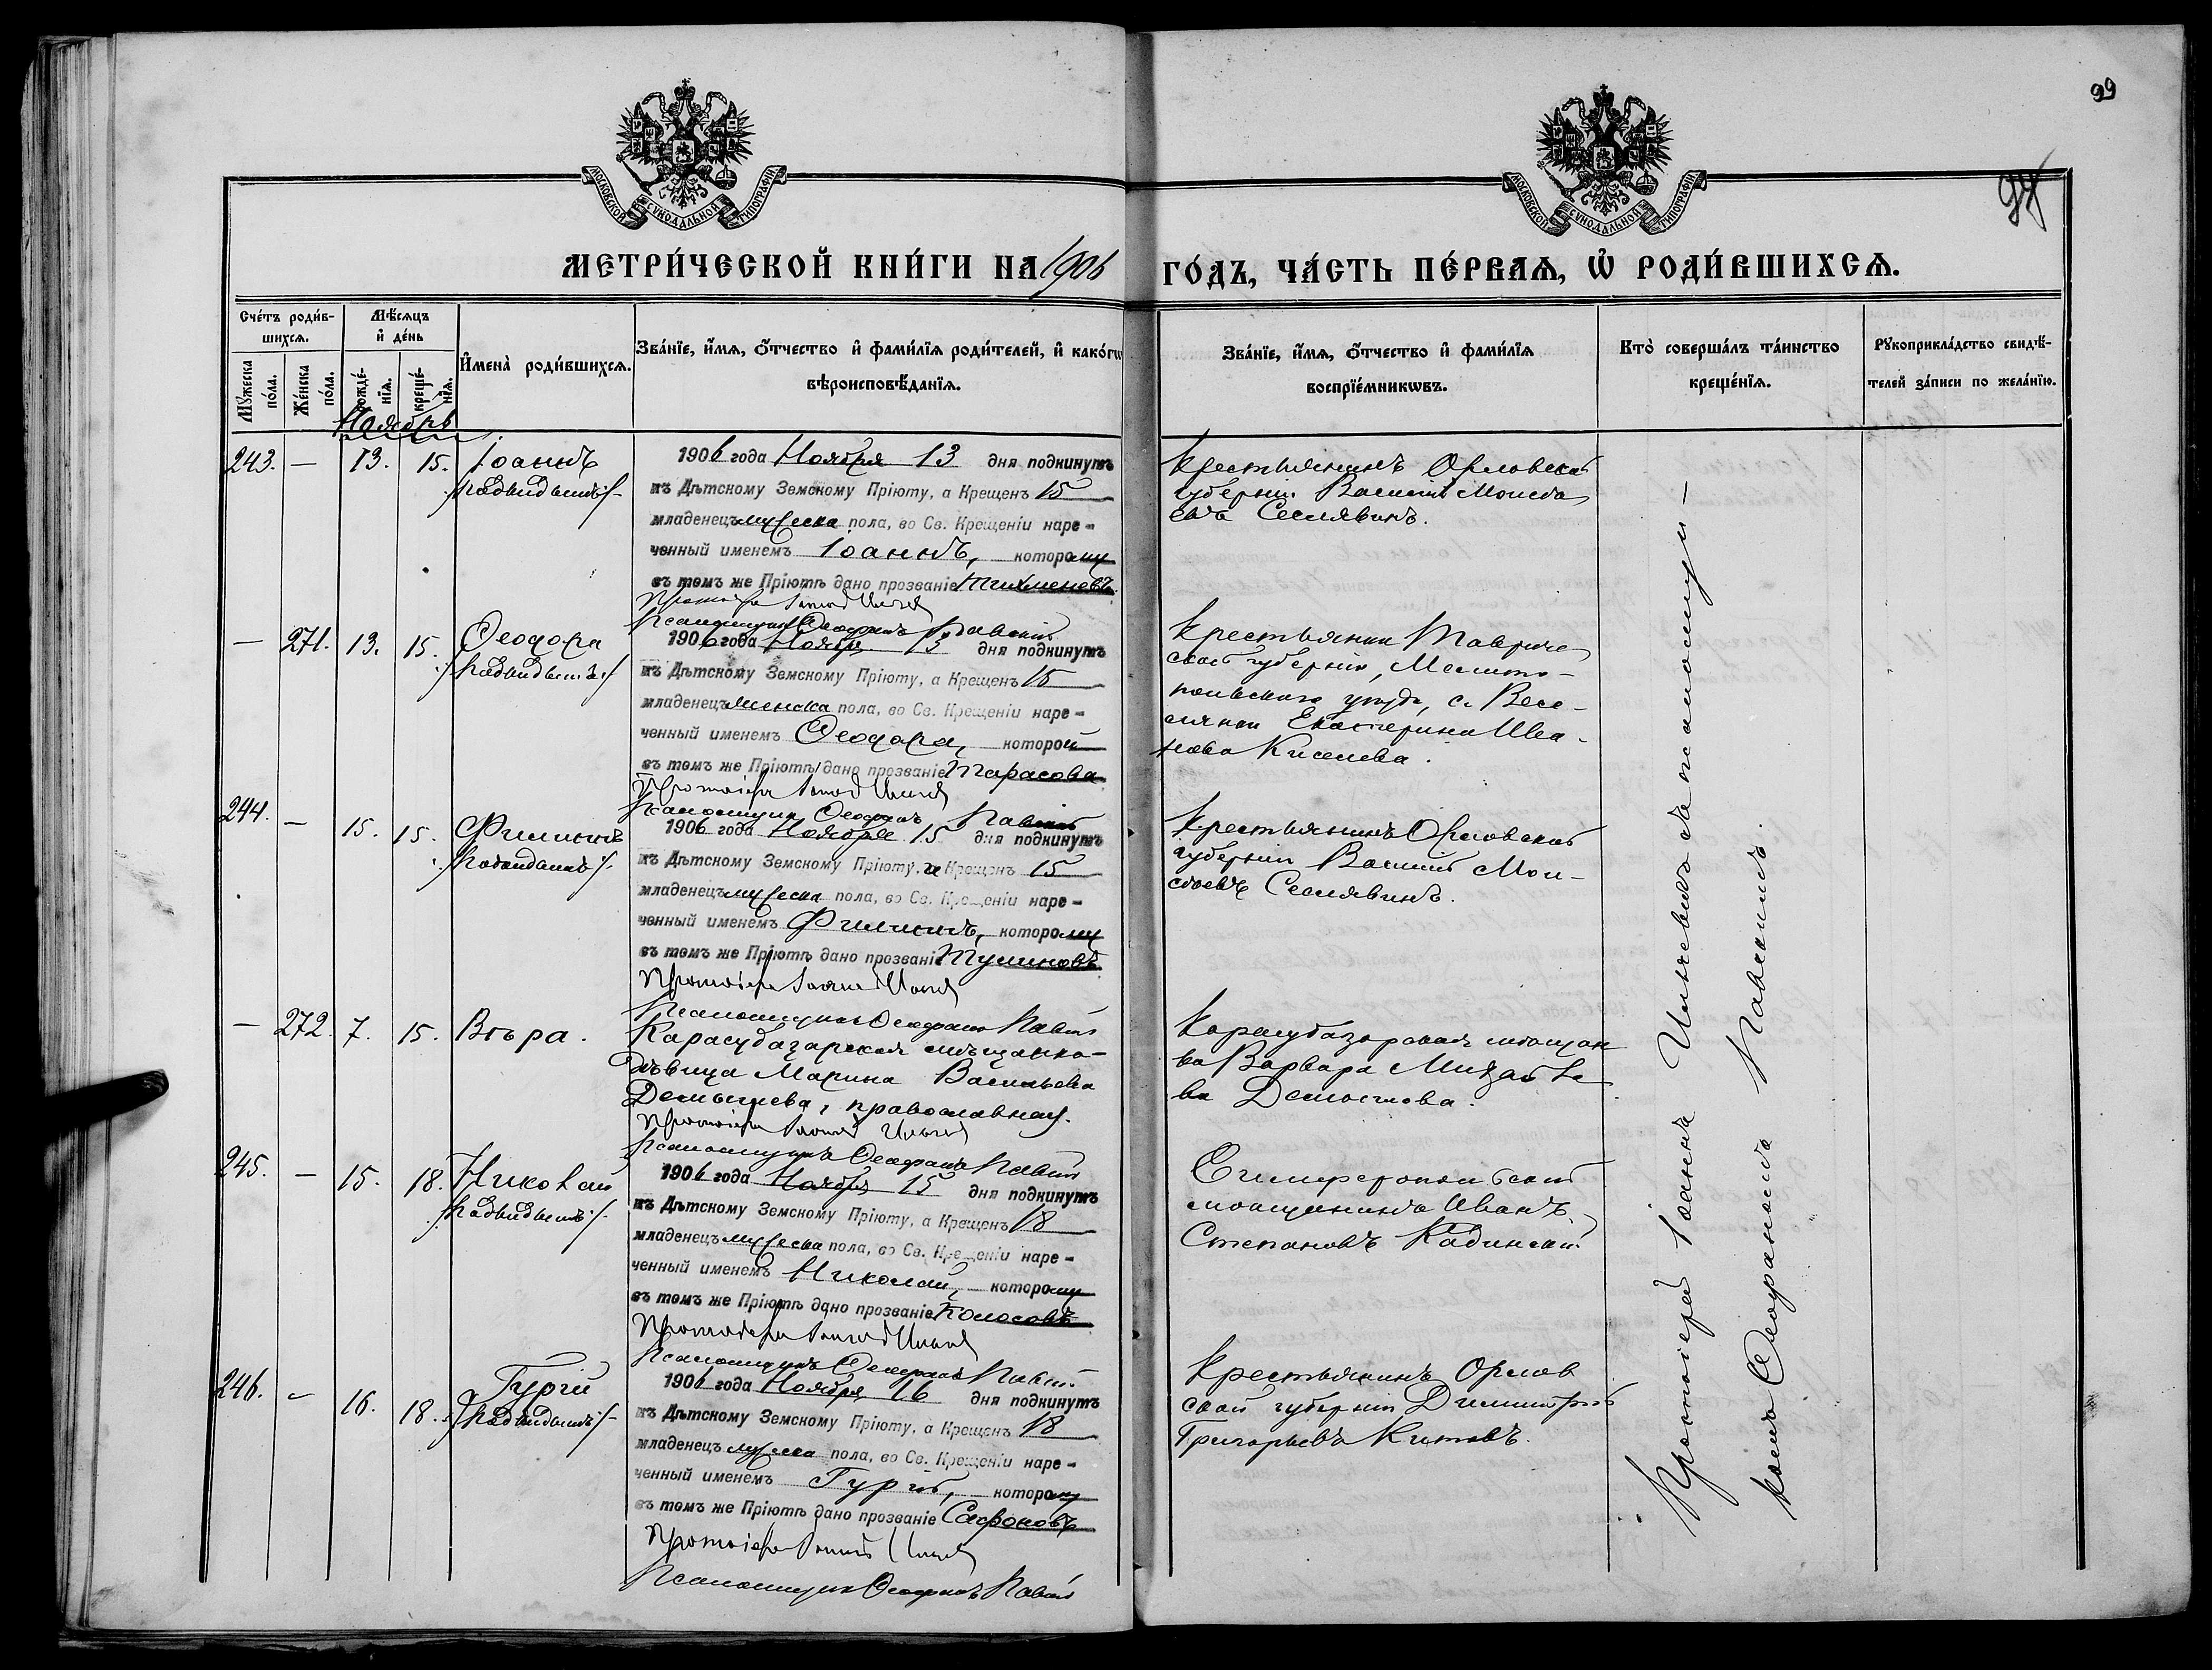 99
94
МОСКОВСКОЙ СУНОДАЛЬНОЙ ТИПОГРАФІИ
МОСКОВСКОЙ СУНОДАЛЬНОЙ ТИПОГРАФІИ
МЕТРИ́ЧЕСКОЙ КНИ́ГИ НА 1906
ГО́ДЪ, ЧА́СТЬ ПЕ́РВАѦ, Ѽ РОДИ́ВШИХСѦ.
Сче́тъ роди́в-
шихсѧ.
Мѣ́сѧцъ
и҆ де́нь
И҆мена̀ роди́вшихсѧ.
Зва́нїе, и҆́мѧ, ѻ҆́тчество и҆ фами́лїѧ роди́телей, и҆ како́гѡ
вѣроисповѣ́данїѧ.
Мꙋ́жеска
по́ла.
Же́нска
по́ла.
рожде́-
нїѧ.
креще́-
нїѧ.
Зва́нїе, и҆́мѧ, ѻ҆́тчество и҆ фами́лїѧ
воспрїе́мникѡвъ.
Кто̀ соверша́лъ та́инство
креще́нїѧ.
Рꙋкоприкла́дство свидѣ́-
телей за́писи по жела́нїю.
Ноябрь
243. — 13. 15. Іоаннъ
/:подкидышъ:/
1906 года Ноября 13 дня подкинутъ
къ Дѣтскому Земскому Пріюту, а Крещенъ 15
младенецъ мужеска пола, во Св. Крещеніи наре-
ченный именемъ Іоаннъ, которому
въ томъ же Пріютѣ дано прозваніе Тихменевъ.
Протоіерей Іоаннъ
Псаломщикъ Ѳеофанъ Павскій
Крестьянинъ Орловской
губерніи Василій Моисе
евъ Селявинъ.
— 271. 13. 15. Ѳеодора
/:подкидышъ:/
1906 года Ноября 13 дня подкинутъ
къ Дѣтскому Земскому Пріюту, а Крещенъ 15
младенецъ женска пола, во Св. Крещеніи наре-
ченный именемъ Ѳеодора, которой
въ томъ же Пріютѣ дано прозваніе Тарасова
Протоіерей Іоаннъ
Псаломщикъ Ѳеофанъ Павскій
Крестьянка Тавриче
ской губерніи, Мелито-
польскаго уѣзда, с. Весе-
лянки Екатерина Ива-
нова Киселева.
244. — 15. 15. Филиппъ
/:подкидышъ:/
1906 года Ноября 15 дня подкинутъ
къ Дѣтскому Земскому Пріюту, а Крещенъ 15
младенецъ мужеска пола, во Св. Крещеніи наре-
ченный именемъ Филиппъ, которому
въ томъ же Пріютѣ дано прозваніе Тулиновъ
Протоіерей Іоаннъ
Псаломщикъ Ѳеофанъ Павскій
Крестьянинъ Орловской
губерніи Василій Мои-
сеевъ Селявинъ.
— 272. 7. 15. Вѣра.
Карасубазарская мѣщанка-
дѣвица Марина Васильева
Демышева, православная.
Протоіерей Іоаннъ
Псаломщикъ Ѳеофанъ Павскій
Карасубазарская мѣщан
ка Варвара Михайло
ва Демышева.
245. — 15. 18. Николай
/:подкидышъ:/
1906 года Ноября 15 дня подкинутъ
къ Дѣтскому Земскому Пріюту, а Крещенъ 18
младенецъ мужеска пола, во Св. Крещеніи наре-
ченный именемъ Николай, которому
въ томъ же Пріютѣ дано прозваніе Колосовъ
Протоіерей Іоаннъ
Псаломщикъ Ѳеофанъ Павскій
Симферопольскій
мѣщанинъ Иванъ
Степановъ Кадинскій.
246. — 16. 18. Гурій
/:подкидышъ:/
1906 года Ноября 16 дня подкинутъ
къ Дѣтскому Земскому Пріюту, а Крещенъ 18
младенецъ мужеска пола, во Св. Крещеніи наре-
ченный именемъ Гурій, которому
въ томъ же Пріютѣ дано прозваніе Сафоновъ
Протоіерей Іоаннъ
Псаломщикъ Ѳеофанъ Павскій
Крестьянинъ Орлов
ской губерніи Димитрій
Григорьевъ Китовъ.
Протоіерей Іоаннъ съ псаломщи-
комъ Ѳеофаномъ Павскимъ.